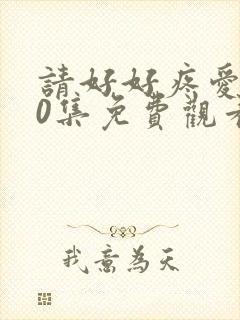 請好好疼愛
0集免費觀看
我意為天